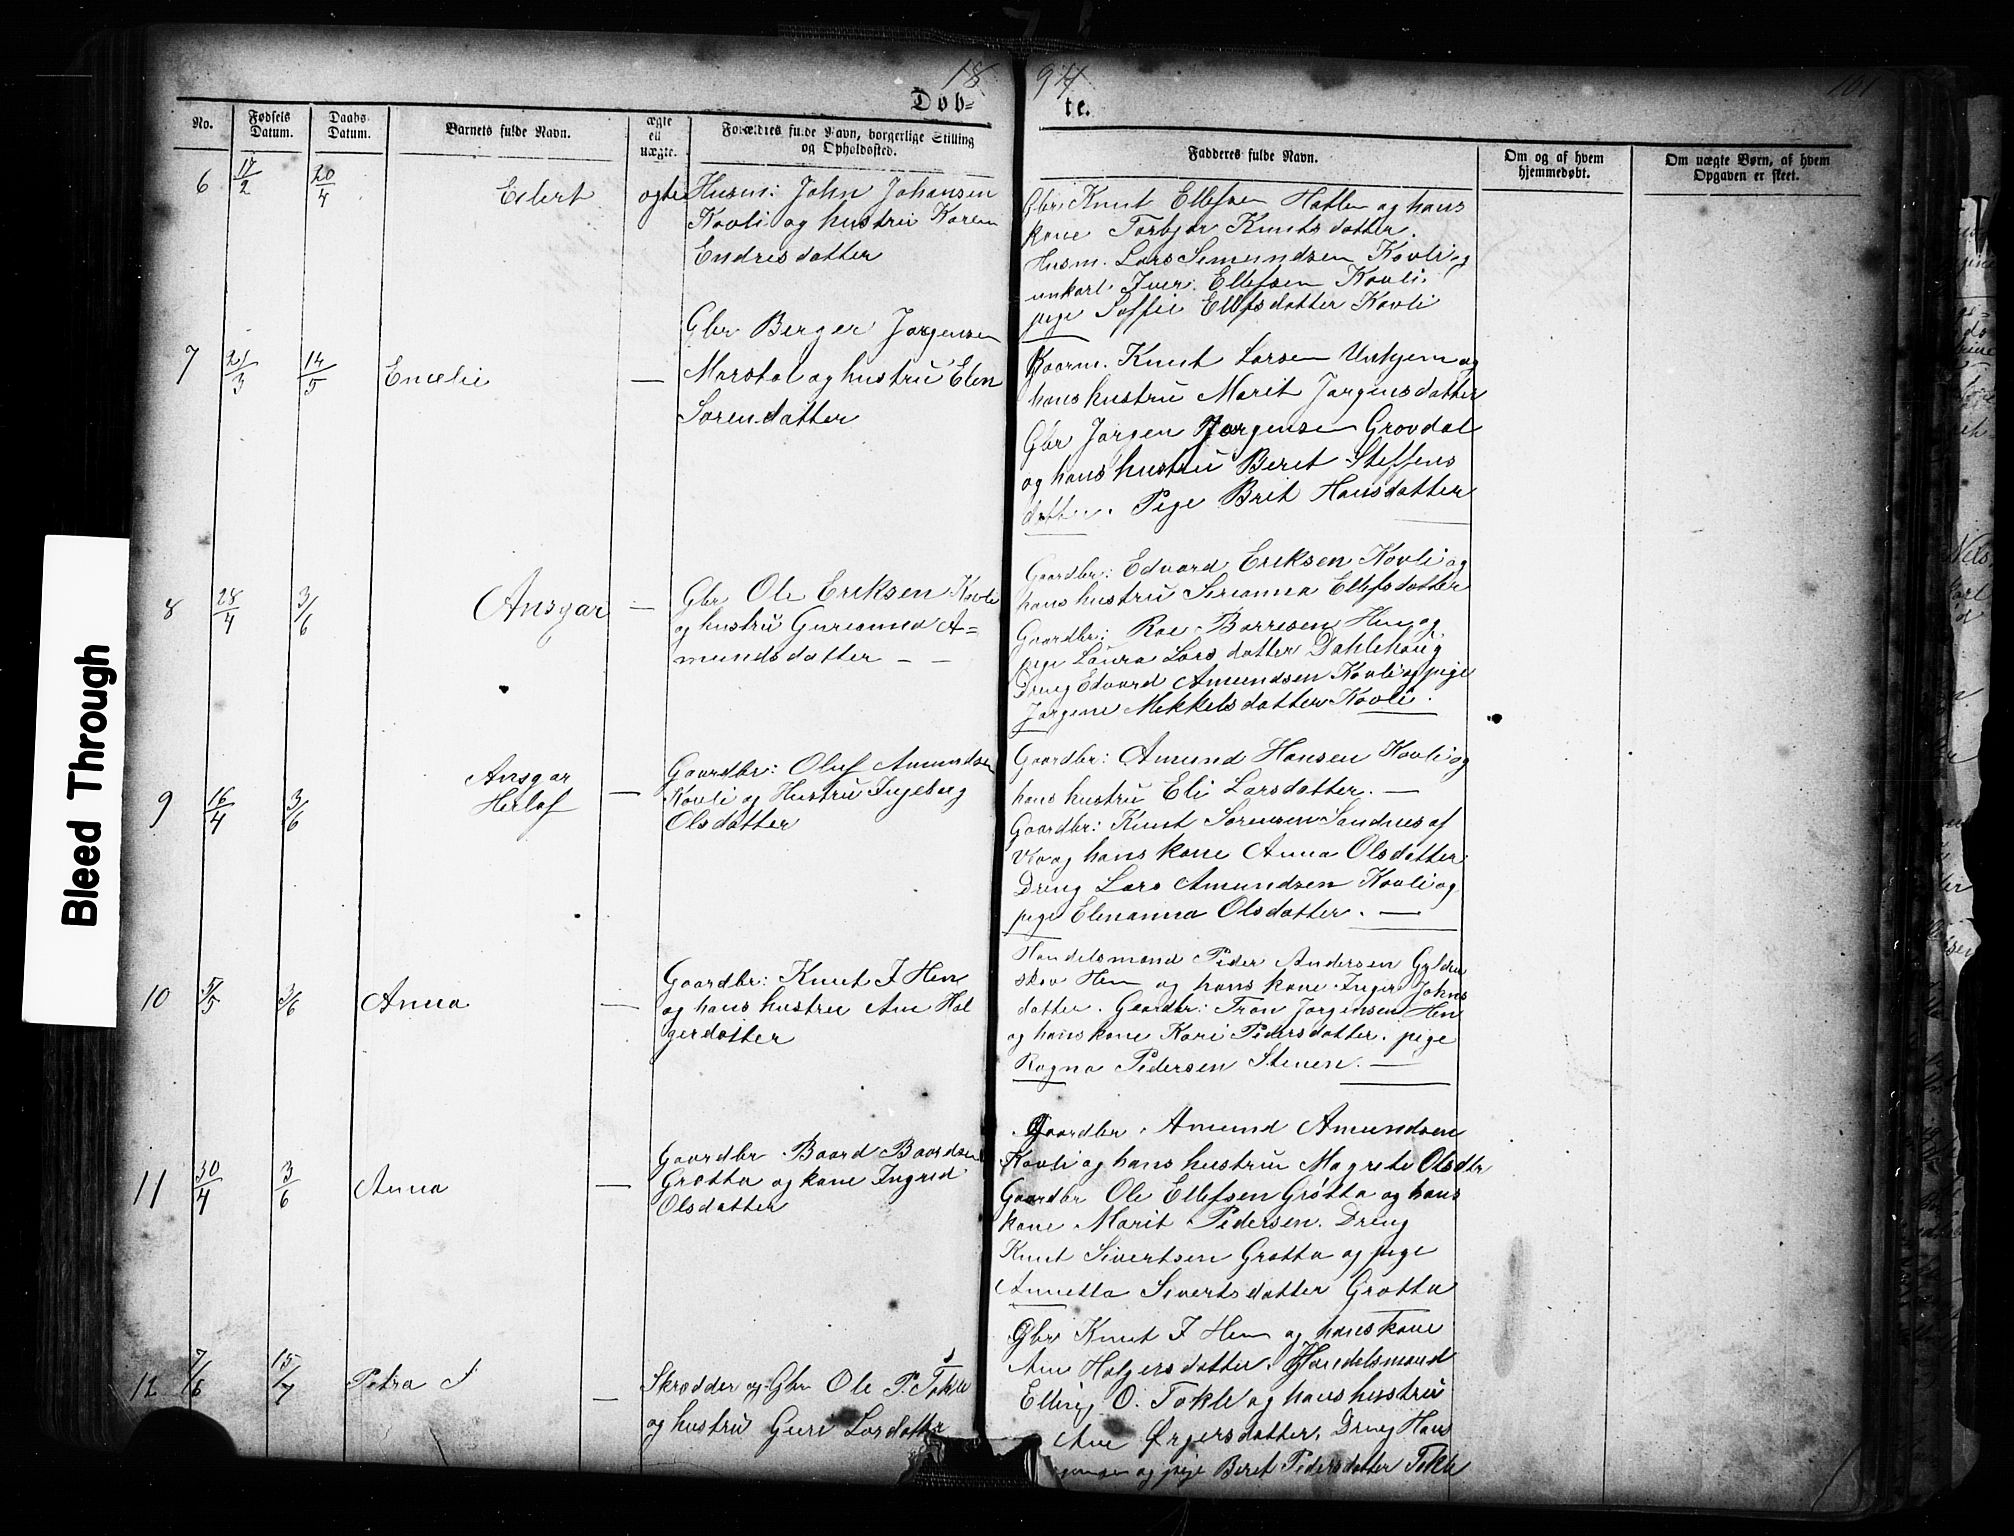 18 94
101
Döb-
te.
No.
Fødsels Datum.
Daabs Datum.
Barnets fulde Navn.
ægte ell uægte.
Forældres fulde Navn, borgerlige Stilling og Opholdssted.
Fadderes fulde Navn.
Om og af hvem hjemmedøbt.
Om uægte Børn, af hvem Opgaven er skeet.
6 17/2 20/4 Eilert ogte
Husm: John Johansen
Kovli og hustru Karen
Endresdatter
Gbr Knut Ellefsen Hatlen og hans
kone Torbjør Knutsdatter.
Husm. Lars Simundsen Kovli og
unkarl. Iver Ellefsen Kovli.
pige Soffie Ellefsdatter Kovli
7 21/3 14/5 Emelie —
Gbr Berger Jørgensen
Marstal og hustru Elen
Sørensdatter
Gaarm. Knut Larsen Unhjem og
hans hustru Marit Jørgensdatter
Gbr Jørgen Jørgensen Grovdal
og hans hustru Beret Steffens
datter. Pige Brit Hansdatter
8 28/4 3/6 Ansgar —
Gbr Ole Eriksen Kovli
og hustru Gurianna A=
mundsdatter — —
Gaardbr: Edvard Eriksen Kovli og
hans hustru Serianna Ellefsdatter
Gaardbr: Roe Børresen Hen og
pige Laura Larsdatter Dahlehaug
Dreng Edvard Amundsen Kovli og pige
Jørgine Mikkelsdatter Kovli.
9 16/4 3/6 Ansgar
Herlof —
Gaardbr: Oluf Amundsen
Kovli og Hustru Ingeborg
Olsdatter
Gaardbr: Amund Hansen Kovli og
hans hustru Eli Larsdatter. —
Gaardbr: Knut Sørensen Sandnes af
Vo og hans kone Anna Olsdatter.
Dreng Lars Amundsen Kovli og
pige Elenanna Olsdatter. —
10 5/5 3/6 Anna —
Gaardbr: Knut I Hen
og hans hustru Ane Hol
gerdatter
Handelsmand Peder Andersen Gylden
skov Hen og hans kone Inger Johns
datter. Gaardbr: Tron Jørgensen Hen
og hans kone Kari Pedersdatter. pige
Ragna Pedersen Stenen. —
11 30/4 3/6 Anna —
Gaardbr Baard Baardsen
Grøtta og kone Ingrid
Olsdatter
Gaardbr. Amund Amundsen
Kovli og hans hustru Magrete Olsdtr
Gaardbr Ole Ellefsen Grøtta og hans
kone Marit Pedersen. Dreng
Knut Sivertsen Grøtta og pige
Annetta Sivertsdatter Grøtta
12 7/6 15/7 Petra —
Skrædder og Gbr Ole P. Tokle
og hustru Guri Larsdatter
Gbr Knut I Hen og hans kone
Ane Holgersdatter. Handelsmand
Elling O. Tokle og hans hustru
Ane Ørgersdatter. Dreng Hans
og pige Beret Pedersdatter Tokle
Bleed Through